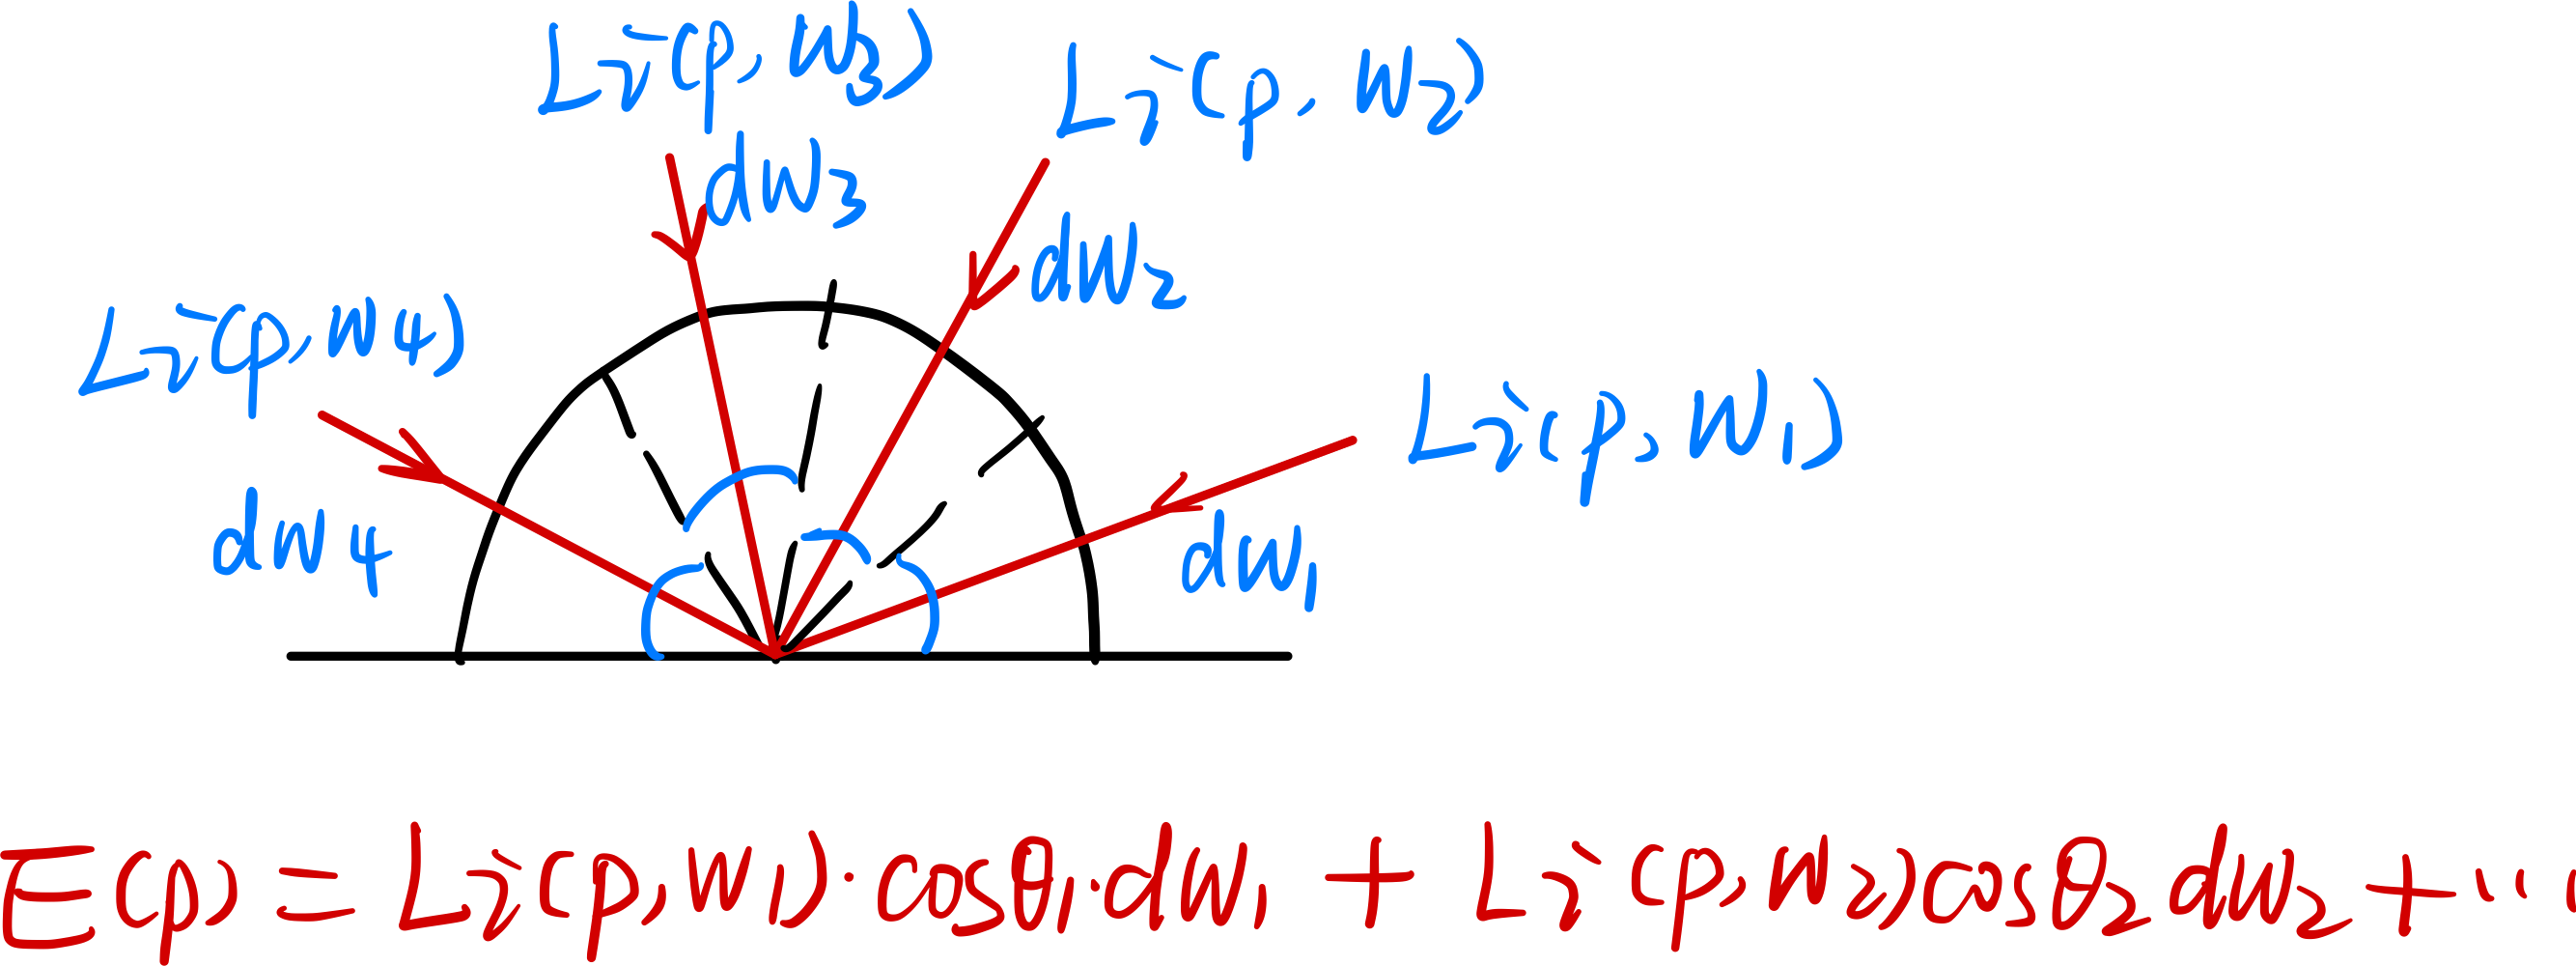 Li(p, W3)
Li(p, W2)
dW3
dW2
Li(p, W4)
Li(p, W1)
dW4
dW1
E(p) = Li(p, W1)·cosθ1·dW1 + Li(p, W2)cosθ2 dW2 + ···